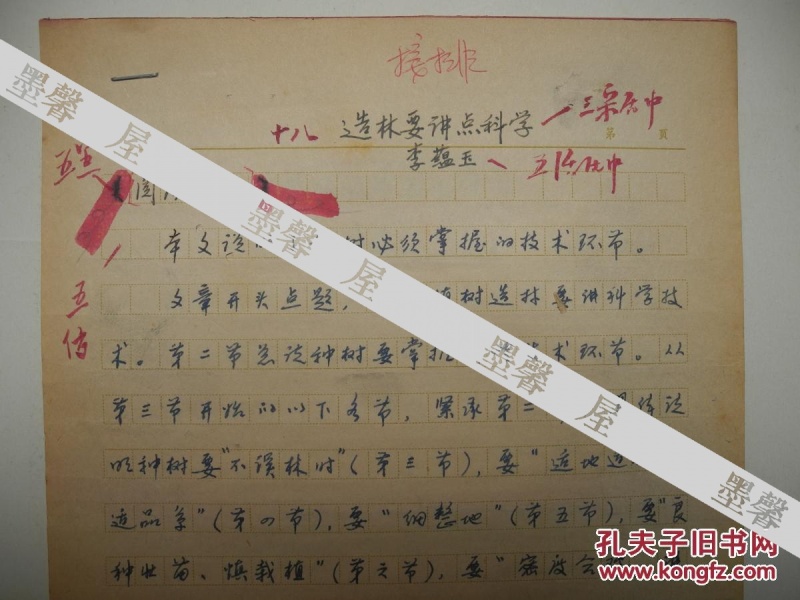 接排
十八 造林要讲点科学 三宋居中
第 頁
李蕴玉 五
五
本文说 树必须掌握的技术环节。
五
文章开头点题, 植树造林要讲科学技
术。第二节总谈种树要掌握 术环节。从
第三节开始的以下各节,紧承第二 谈
种树要“不误林时”(第三节),要“适地适
适品系”(第四节),要“细整地”(第五节),要“良
种壮苗、慎栽植”(第六节),要“密度合
墨馨屋
墨馨屋
墨馨屋
墨馨屋
墨馨屋
孔夫子旧书网
www.kongfz.com